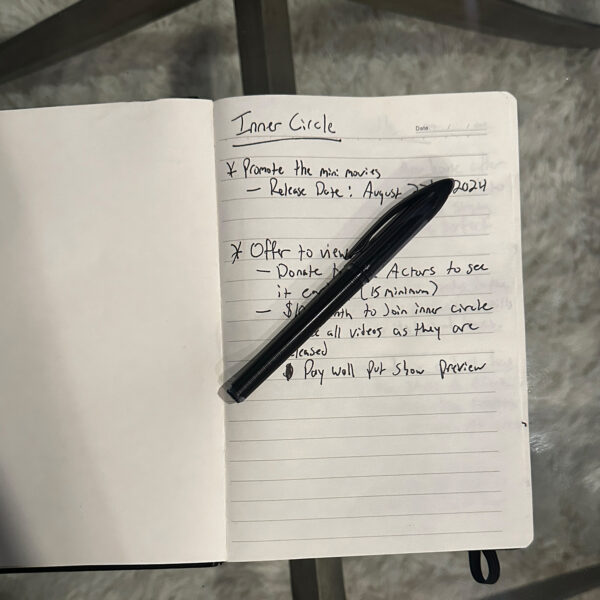 Inner Circle
Date / /
* Promote the mini movies
- Release Date: August 2024
* Offer to
- Donate Actors to see
it (15 minimum)
- to Join inner circle
all videos as they are
Pay wall put show preview